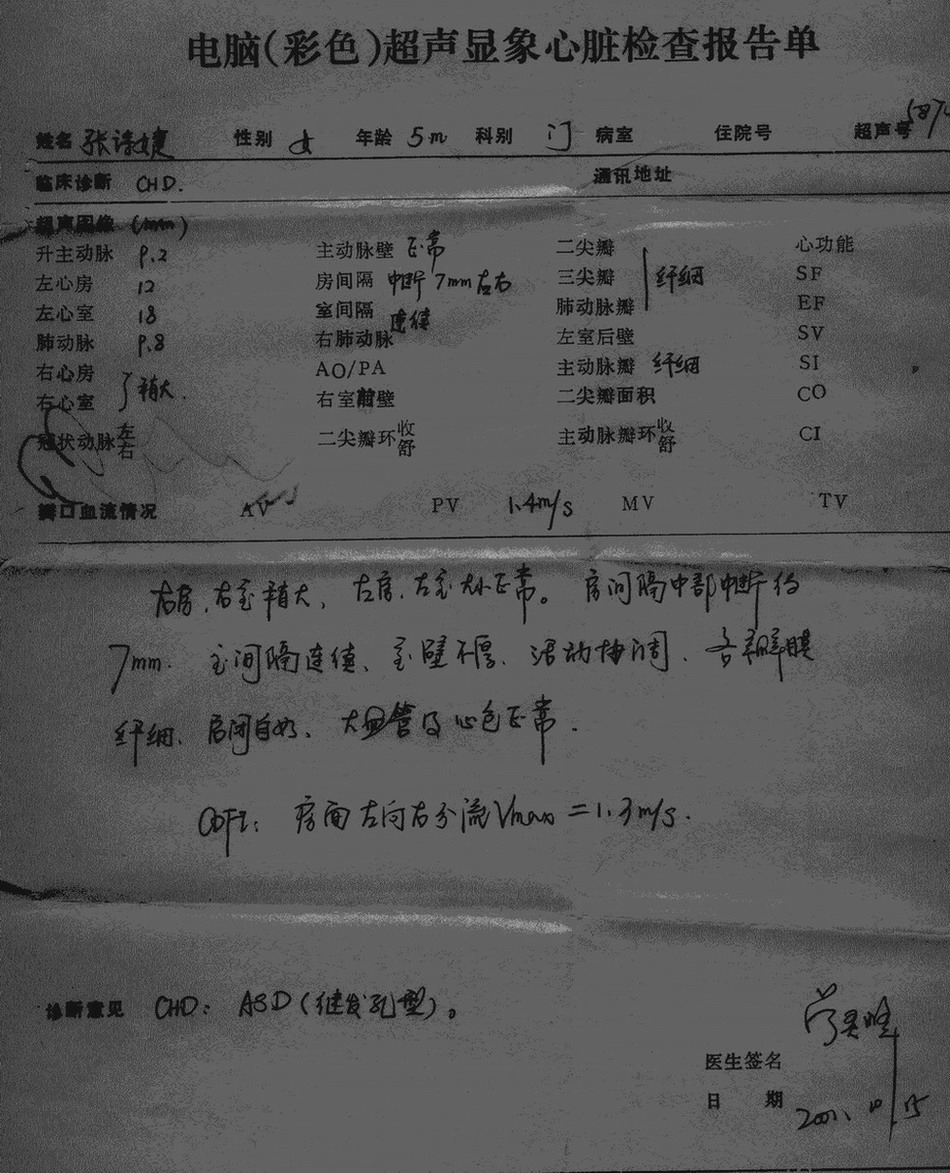 电脑(彩色)超声显象心脏检查报告单
姓名 张诗婕 性别 女 年龄 5m 科别 门 病室 住院号 超声号
临床诊断 CHD. 通讯地址
超声图像 (mm)
升主动脉 9.2 主动脉壁 正常 二尖瓣 心功能
左心房 12 房间隔 中断7mm左右 三尖瓣 纤细 SF
左心室 18 室间隔 连续 肺动脉瓣 EF
肺动脉 9.8 右肺动脉 左室后壁 SV
右心房 AO/PA 主动脉瓣 纤细 SI
右心室 稍大. 右室前壁 二尖瓣面积 CO
冠状动脉左右 二尖瓣环收舒 主动脉瓣环收舒 CI
瓣口血流情况 AV PV 1.4m/s MV TV
右房、右室稍大、左房、左室大小正常。房间隔中部中断约
7mm. 室间隔连续、室壁不厚、活动协调、各瓣膜
纤细、启闭自如、大血管及心包正常.
CDFI: 房面左向右分流Vmax=1.3m/s.
诊断意见 CHD: ASD(继发孔型)。
医生签名
日期 2001.10.15